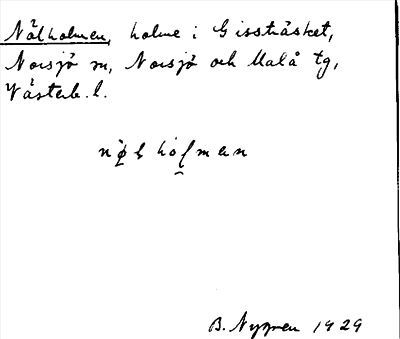 Nålholmen, holme i Gissträsket,
Norsjö sn, Norsjö och Malå tg,
Västerb. l.
B. Nygren 1929